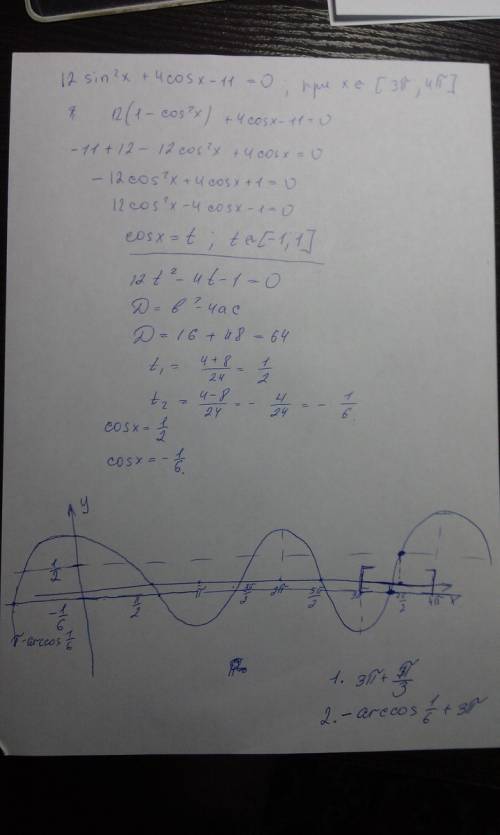 12 sin²x + 4cosx - 11 = 0 ; при x ∈ [3π, 4π]
12(1 - cos²x) + 4cosx - 11 = 0
-11 + 12 - 12cos²x + 4cosx = 0
-12cos²x + 4cosx + 1 = 0
12cos²x - 4cosx - 1 = 0
cosx = t ; t ∈ [-1, 1]
12t² - 4t - 1 = 0
D = b² - 4ac
D = 16 + 48 = 64
t₁ = (4+8)/24 = 1/2
t₂ = (4-8)/24 = -4/24 = -1/6.
cosx = 1/2
cosx = -1/6.
y
1/2
-1/6
π/2 π 3π/2 2π 5π/2 4π x
π - arccos 1/6
1. 3π + π/3
2. -arccos 1/6 + 3π